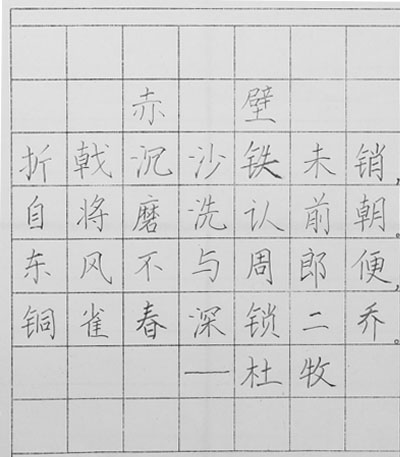 赤壁
折戟沉沙铁未销，
自将磨洗认前朝。
东风不与周郎便，
铜雀春深锁二乔。
——杜牧